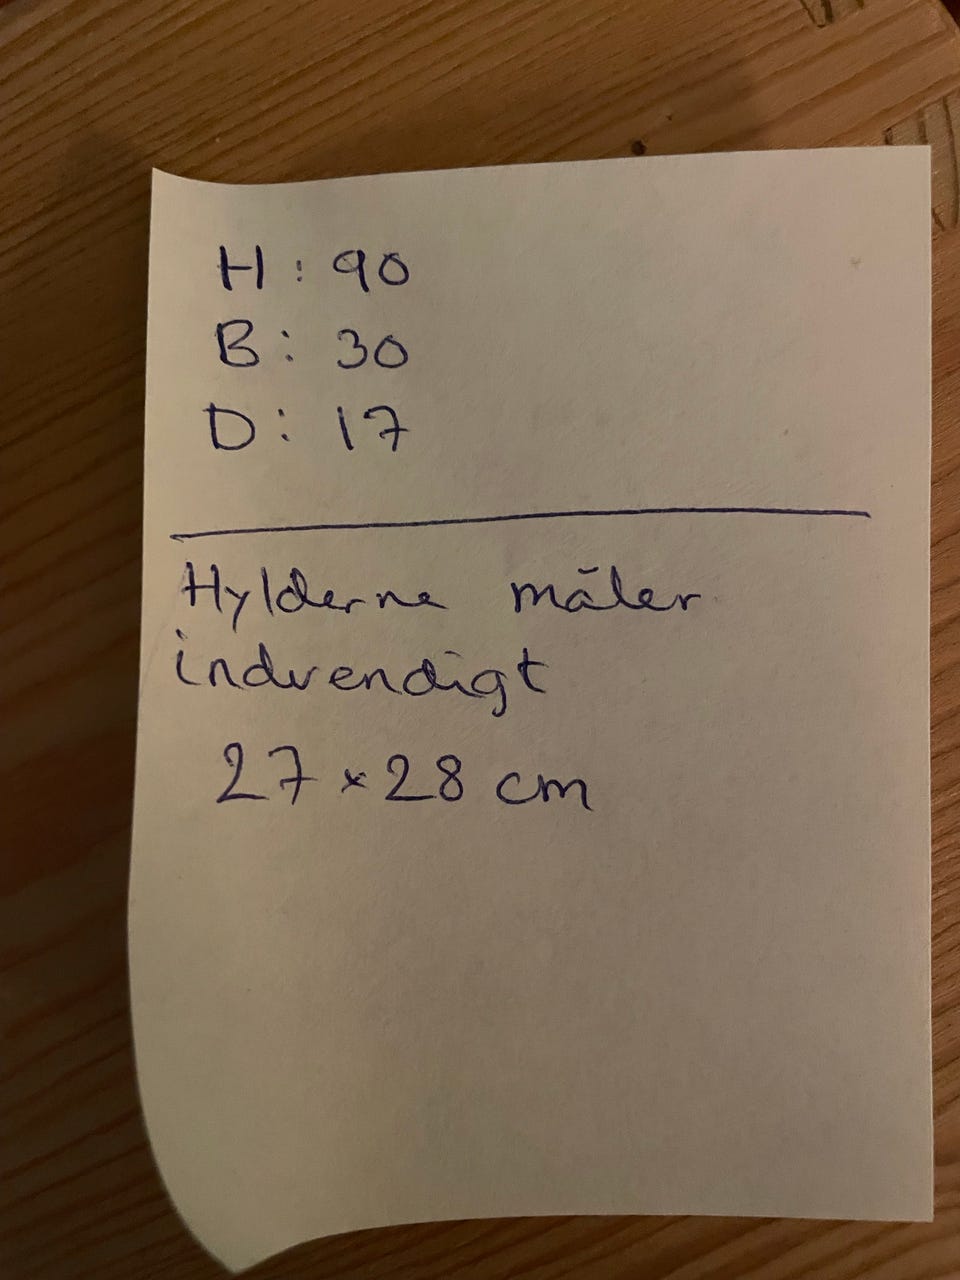 H: 90
B: 30
D: 17
Hylderne måler
indvendigt
27 x 28 cm